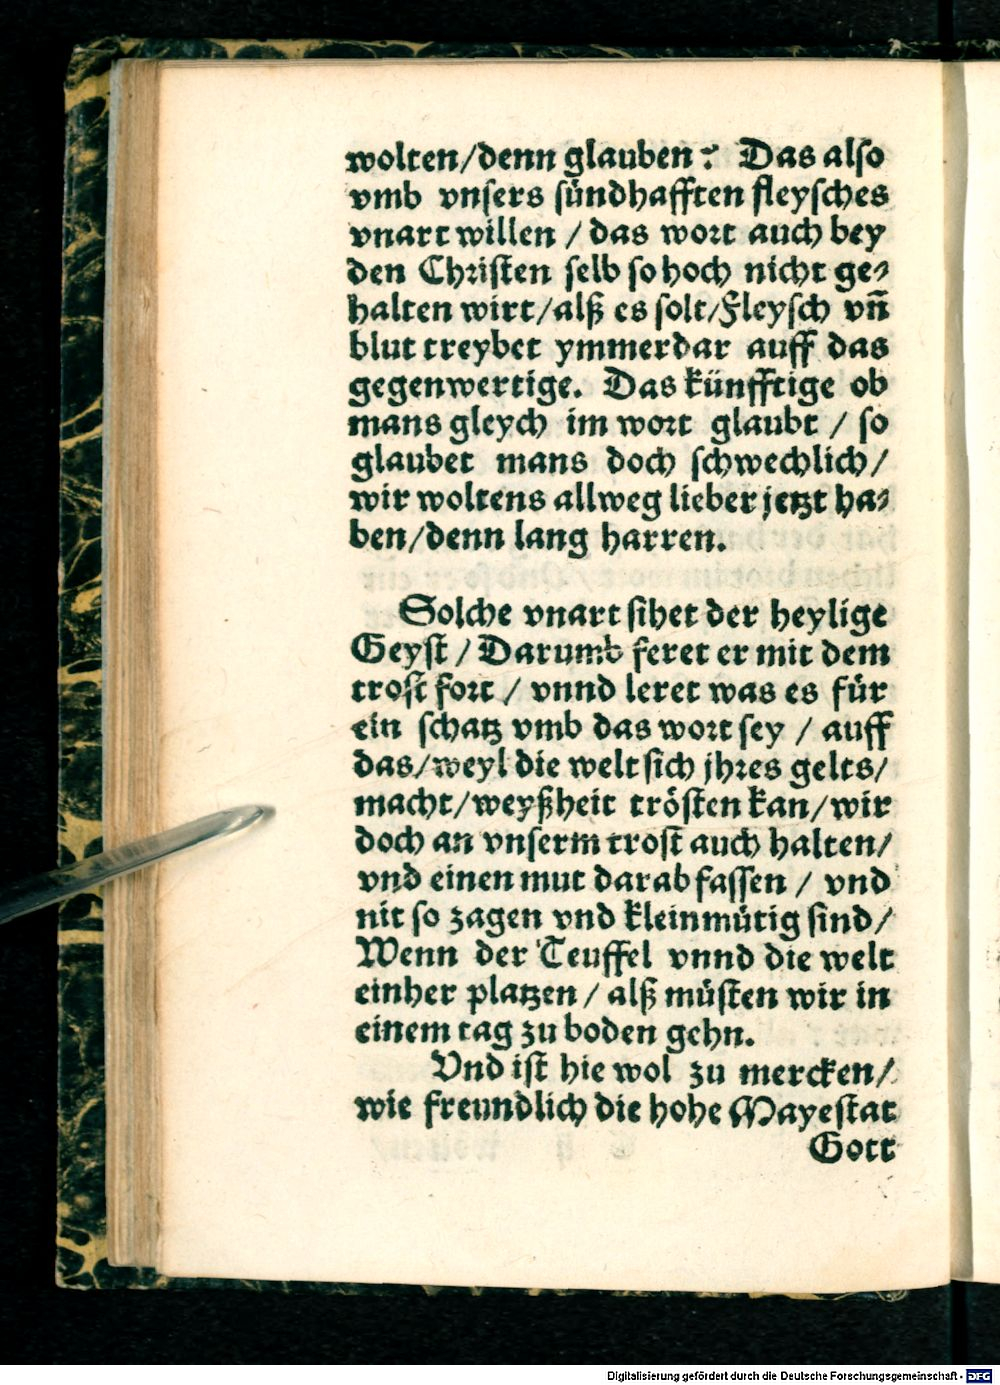 wolten/denn glauben? Das also
vmb vnsers sündhafften fleysches
vnart willen / das wort auch bey
den Christen selb so hoch nicht ge⸗
halten wirt/alß es solt/Fleysch vñ
blut treybet ymmerdar auff das
gegenwertige. Das künfftige ob
mans gleych im wort glaubt / so
glaubet mans doch schwechlich/
wir woltens allweg lieber jetzt ha⸗
ben/denn lang harren.
Solche vnart sihet der heylige
Geyst / Darumb feret er mit dem
trost fort / vnnd leret was es für
ein schatz vmb das wort sey / auff
das/weyl die welt sich jhres gelts/
macht/weyßheit trösten kan/wir
doch an vnserm trost auch halten/
vnd einen mut darab fassen / vnd
nit so zagen vnd kleinmütig sind/
Wenn der Teuffel vnnd die welt
einher platzen / alß müsten wir in
einem tag zu boden gehn.
Vnd ist hie wol zu mercken/
wie freundlich die hohe Mayestat
Gott
Digitalisierung gefördert durch die Deutsche Forschungsgemeinschaft - DFG